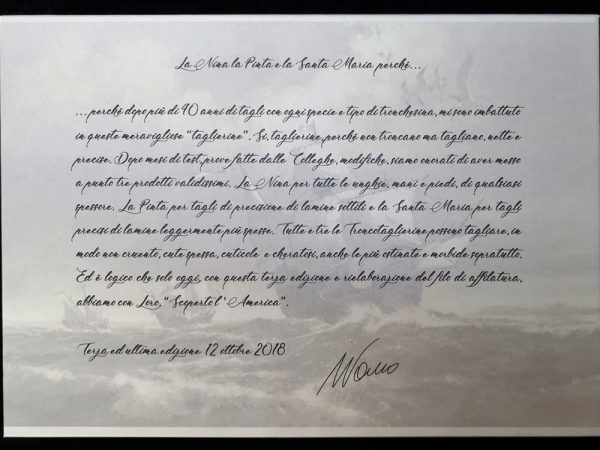 La Nina la Pinta e la Santa Maria perché...
...perché dopo più di 40 anni di tagli con ogni specie e tipo di tronchesina, mi sono imbattuto
in queste meravigliose "taglierine". Si, taglierine, perché non troncano ma tagliano, nette e
precise. Dopo mesi di test, prove fatte dalle Colleghe, modifiche, siamo onorati di aver messo
a punto tre prodotti validissimi. La Nina per tutte le unghie, mani e piedi, di qualsiasi
spessore. La Pinta per tagli di precisione di lamine sottili e la Santa Maria per tagli
precisi di lamine leggermente più spesse. Tutte e tre le Troncotaglierine possono tagliare, in
modo non cruento, cute spessa, cuticole e cheratosi, anche le più ostinate e morbide sopratutto.
Ed è logico che solo oggi, con questa terza edizione e rielaborazione del filo di affilatura,
abbiamo con Loro, "Scoperto l'America".
Terza ed ultima edizione 12 ottobre 2018